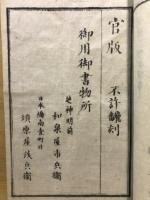 官版　不許翻刻
御用御書物所
芝神明前
和泉屋市兵衛
日本橋南壹町目
須原屋茂兵衛